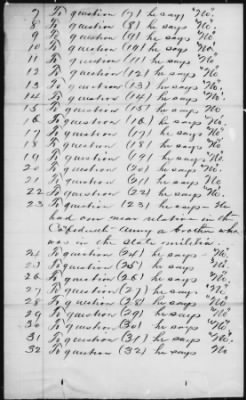 7 To question (7) he says "No".
8 To question (8) he says "No.
9 To question (9) he says "No.
10 To question (10) he says "No.
11 To question (11) he says "No.
12 To question (12) he says "No
13 To question (13) he says "No.
14 To question (14) he says "No.
15 To question (15) he says "No.
16 To question (16) he says "No.
17 To question (17) he says "No.
18 To question (18) he says "No.
19 To question (19) he says "No.
20 To question (20) he says "No.
21 To question (21) he says "No.
22 To question (22) he says "No.
23 To question (23) he says - He
had one near relation in the
Confederate Army a brother who
was in the State militia
24 To question (24) he says "No.
25 To question (25) he says "No.
26 To question (26) he says "No.
27 To question (27) he says "No.
28 To question (28) he says "No.
29 To question (29) he says "No.
30 To question (30) he says "No
31 To question (31) he says "No.
32 To question (32) he says "No